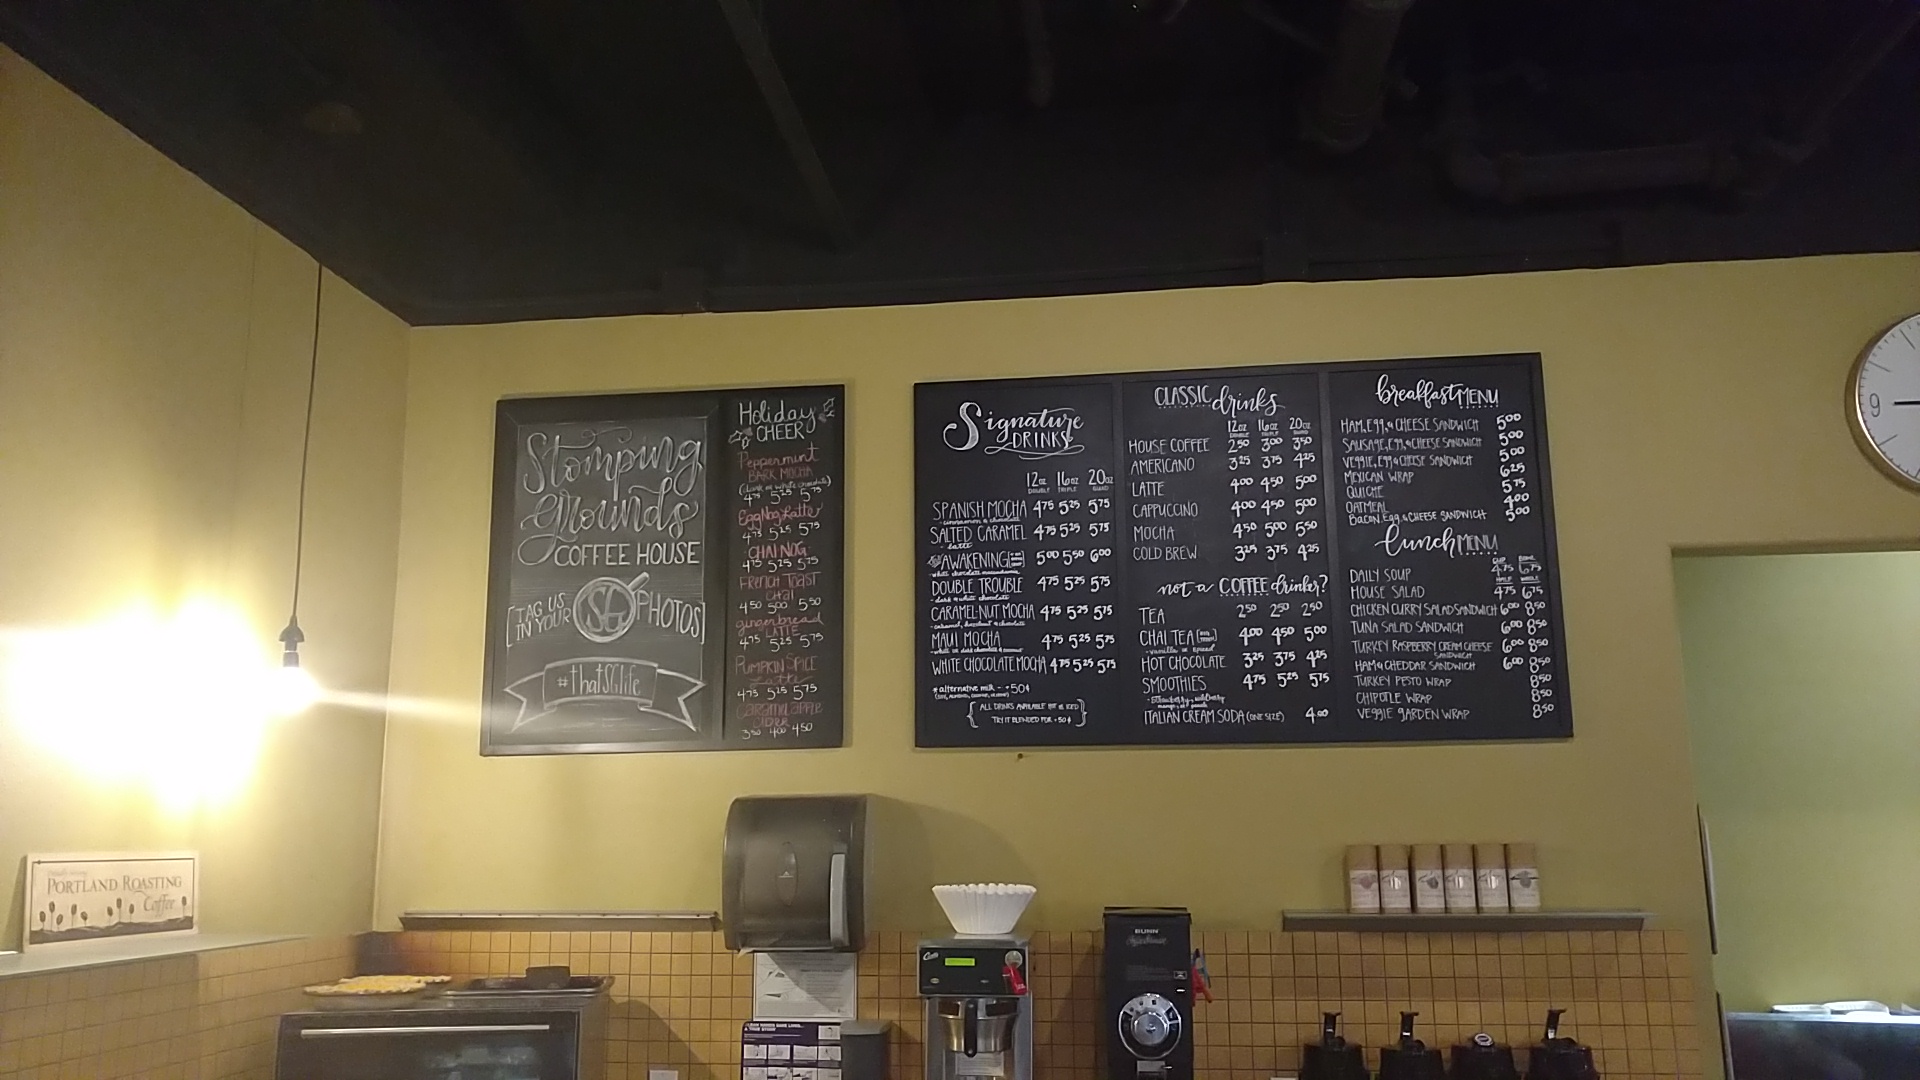 Stomping
grounds
COFFEE HOUSE
[TAG US
IN YOUR SG PHOTOS]
#thatSGlife
Holiday
CHEER
Peppermint
BARK MOCHA
(dark or white chocolate)
4.75 5.25 5.75
EggNog Latte
4.75 5.25 5.75
CHAI NOG
4.75 5.25 5.75
FRENCH TOAST
CHAI
4.50 5.00 5.50
gingerbread
LATTE
4.75 5.25 5.75
PUMPKIN SPICE
Latte
4.75 5.25 5.75
CARAMEL APPLE
CIDER
3.50 4.00 4.50
Signature
DRINKS
12oz 16oz 20oz
DOUBLE TRIPLE QUAD
SPANISH MOCHA 4.75 5.25 5.75
- cinnamon & chocolate
SALTED CARAMEL 4.75 5.25 5.75
- latte
AWAKENING 5.00 5.50 6.00
- white chocolate macadamia
DOUBLE TROUBLE 4.75 5.25 5.75
- dark & white chocolate
CARAMEL-NUT MOCHA 4.75 5.25 5.75
- caramel, hazelnut & chocolate
MAUI MOCHA 4.75 5.25 5.75
- white or dark chocolate & coconut
WHITE CHOCOLATE MOCHA 4.75 5.25 5.75
*alternative milk - +50¢
{ ALL DRINKS AVAILABLE HOT or ICED
TRY IT BLENDED FOR +50¢ }
CLASSIC drinks
12oz 16oz 20oz
DOUBLE TRIPLE QUAD
HOUSE COFFEE 2.50 3.00 3.50
AMERICANO 3.25 3.75 4.25
LATTE 4.00 4.50 5.00
CAPPUCCINO 4.00 4.50 5.00
MOCHA 4.50 5.00 5.50
COLD BREW 3.25 3.75 4.25
not a COFFEE drinker?
TEA 2.50 2.50 2.50
CHAI TEA 4.00 4.50 5.00
- vanilla or spiced
HOT CHOCOLATE 3.25 3.75 4.25
SMOOTHIES 4.75 5.25 5.75
ITALIAN CREAM SODA (ONE SIZE) 4.00
breakfast MENU
HAM, EGG, & CHEESE SANDWICH 5.00
SAUSAGE, EGG, & CHEESE SANDWICH 5.00
VEGGIE, EGG & CHEESE SANDWICH 5.00
MEXICAN WRAP 6.25
QUICHE 5.75
OATMEAL 4.00
BACON, EGG, & CHEESE SANDWICH 5.00
lunch MENU
CUP BOWL
DAILY SOUP 4.75 6.75
HALF WHOLE
HOUSE SALAD 4.75 6.75
CHICKEN CURRY SALAD SANDWICH 6.00 8.50
TUNA SALAD SANDWICH 6.00 8.50
TURKEY RASPBERRY CREAM CHEESE
SANDWICH 6.00 8.50
HAM & CHEDDAR SANDWICH 6.00 8.50
TURKEY PESTO WRAP 8.50
CHIPOTLE WRAP 8.50
VEGGIE GARDEN WRAP 8.50
9
PORTLAND ROASTING
Coffee
Curtis
BUNN